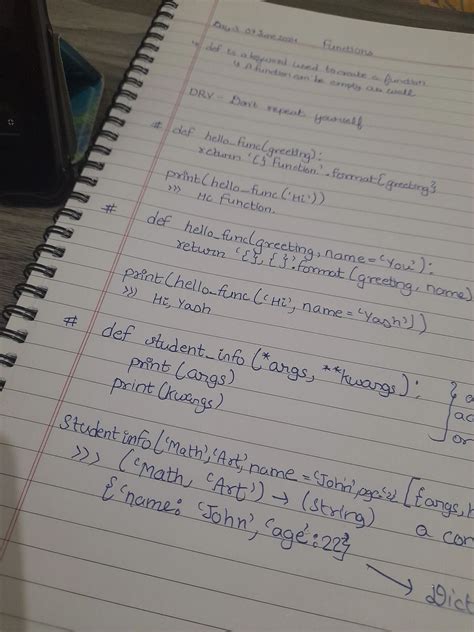 Day 3 07 June 2024 Functions
* def is a keyword used to create a function
↳ A function can be empty as well
DRY - Don't repeat yourself
# def hello_func(greeting):
return '{} Function.'.format{greeting}
print(hello_func('Hi'))
>>> Hi Function.
# def hello_func(greeting, name = 'You'):
return '{}, {}'.format(greeting, name)
print(hello_func('Hi', name = 'Yash'))
>>> Hi, Yash
# def student_info(*args, **kwargs):
print(args)
print(kwargs)
student info('Math', 'Art', name = 'John', age
>>> ('Math, 'Art') → (String)
{'name: 'John', 'age': 22}
→ Dict